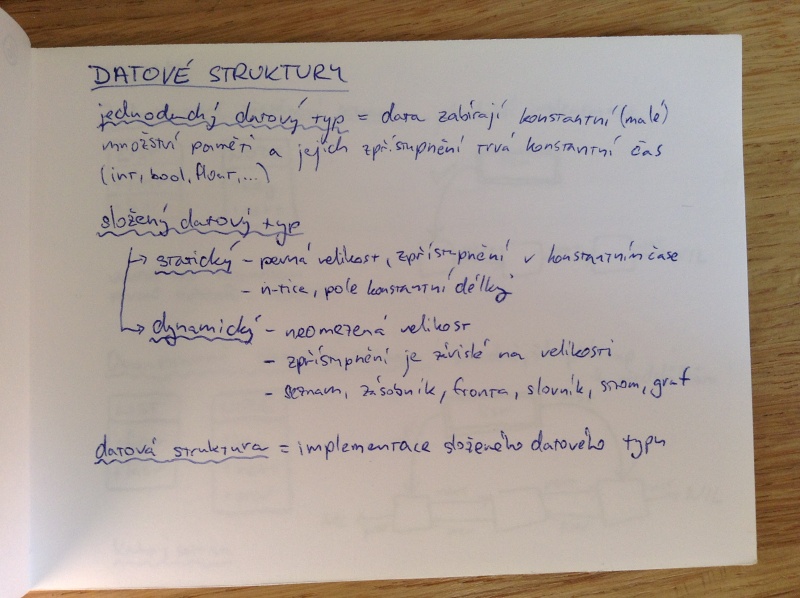 DATOVÉ STRUKTURY
jednoduchý datový typ = data zabírají konstantní (malé)
množství paměti a jejich zpřístupnění trvá konstantní čas
(int, bool, float, ...)
složený datový typ
→ statický - pevná velikost, zpřístupnění v konstantním čase
- n-tice, pole konstantní délky
→ dynamický - neomezená velikost
- zpřístupnění je závislé na velikosti
- seznam, zásobník, fronta, slovník, strom, graf
datová struktura = implementace složeného datového typu